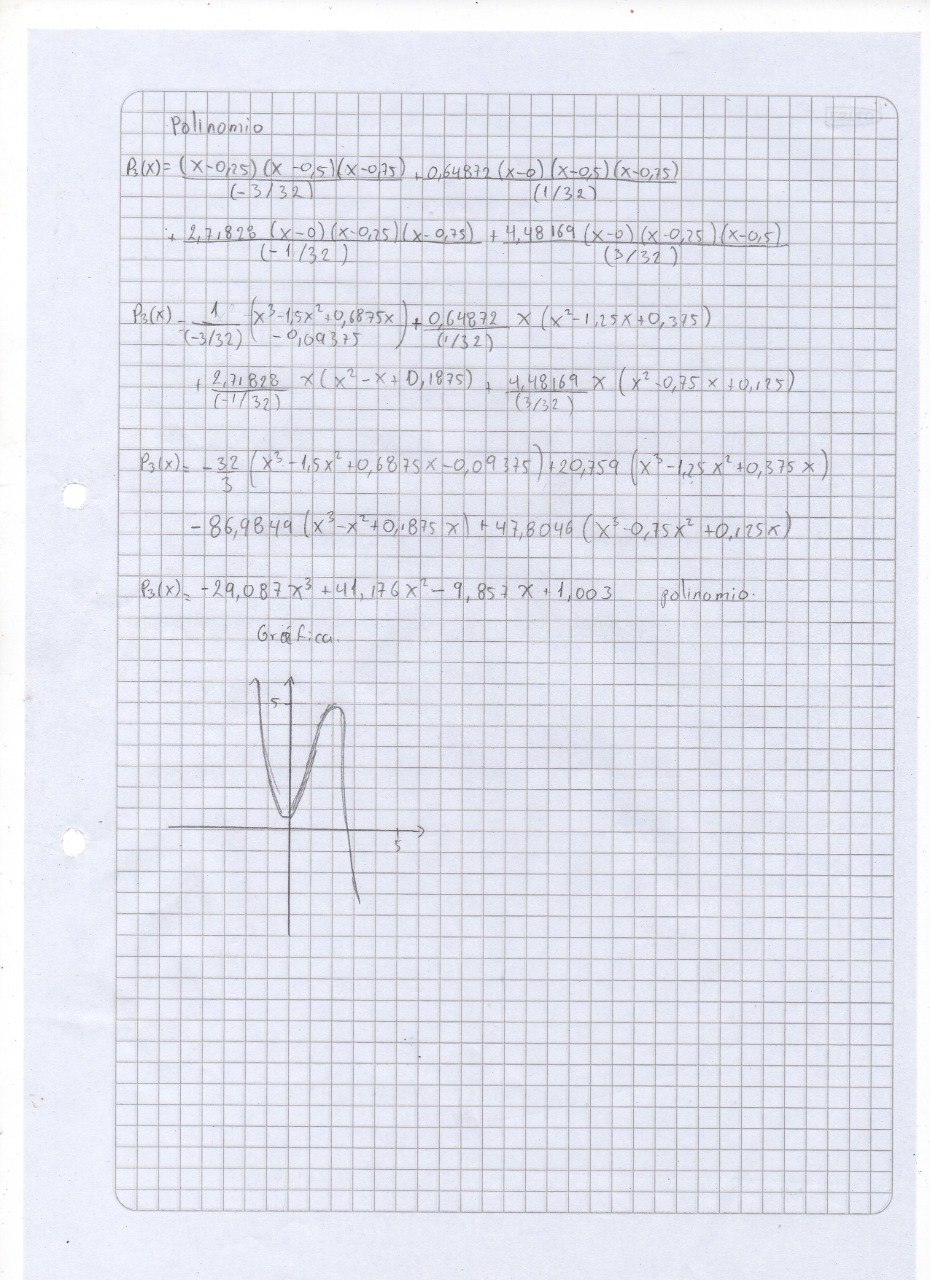 Polinomio
P₃(x) = (x-0,25)(x-0,5)(x-0,75) / (-3/32) + 0,64872 (x-0)(x-0,5)(x-0,75) / (1/32)
+ 2,71828 (x-0)(x-0,25)(x-0,75) / (-1/32) + 4,48169 (x-0)(x-0,25)(x-0,5) / (3/32)
P₃(x) = 1/(-3/32) (x³-1,5x²+0,6875x -0,09375) + 0,64872/(1/32) x (x²-1,25x+0,375)
+ 2,71828/(-1/32) x (x²-x+0,1875) + 4,48169/(3/32) x (x²-0,75x+0,125)
P₃(x) = -32/3 (x³-1,5x²+0,6875x-0,09375) + 20,759 (x³-1,25x²+0,375x)
-86,9849 (x³-x²+0,1875x) + 47,8046 (x³-0,75x²+0,125x)
P₃(x) = -29,087x³ + 41,176x² - 9,857x + 1,003 polinomio.
Gráfica.
5
5